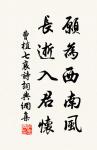 願為西南風
長逝入君懷
曹植七哀詩詞典網集